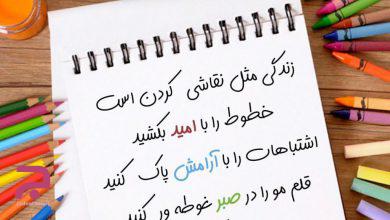 زندگی مثل نقاشی کردن است
خطوط را با امید بکشید
اشتباهات را با آرامش پاک کنید
قلم مو را در صبر غوطه ور کنید